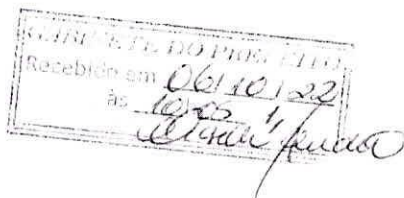 GABINETE DO PREFEITO
Recebido em 06/10/22
às 10:05